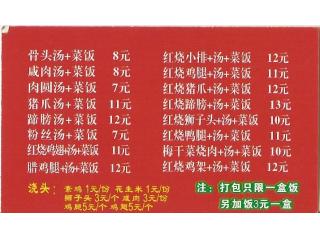 骨头汤+菜饭 8元
咸肉汤+菜饭 8元
肉圆汤+菜饭 7元
猪爪汤+菜饭 11元
蹄膀汤+菜饭 12元
粉丝汤+菜饭 7元
红烧鸡翅+汤+菜饭 11元
腊鸡腿+汤+菜饭 12元
红烧小排+汤+菜饭 12元
红烧鸡腿+汤+菜饭 11元
红烧猪爪+汤+菜饭 12元
红烧蹄膀+汤+菜饭 13元
红烧狮子头+汤+菜饭 10元
红烧鸭腿+汤+菜饭 11元
梅干菜烧肉+汤+菜饭 10元
红烧鸡架+汤+菜饭 12元
浇头: 素鸡 1元/份 花生米 1元/份
狮子头 3元/个 咸肉 3元/份
鸡腿5元/个 鸡翅5元/个
注: 打包只限一盒饭
另加饭3元一盒